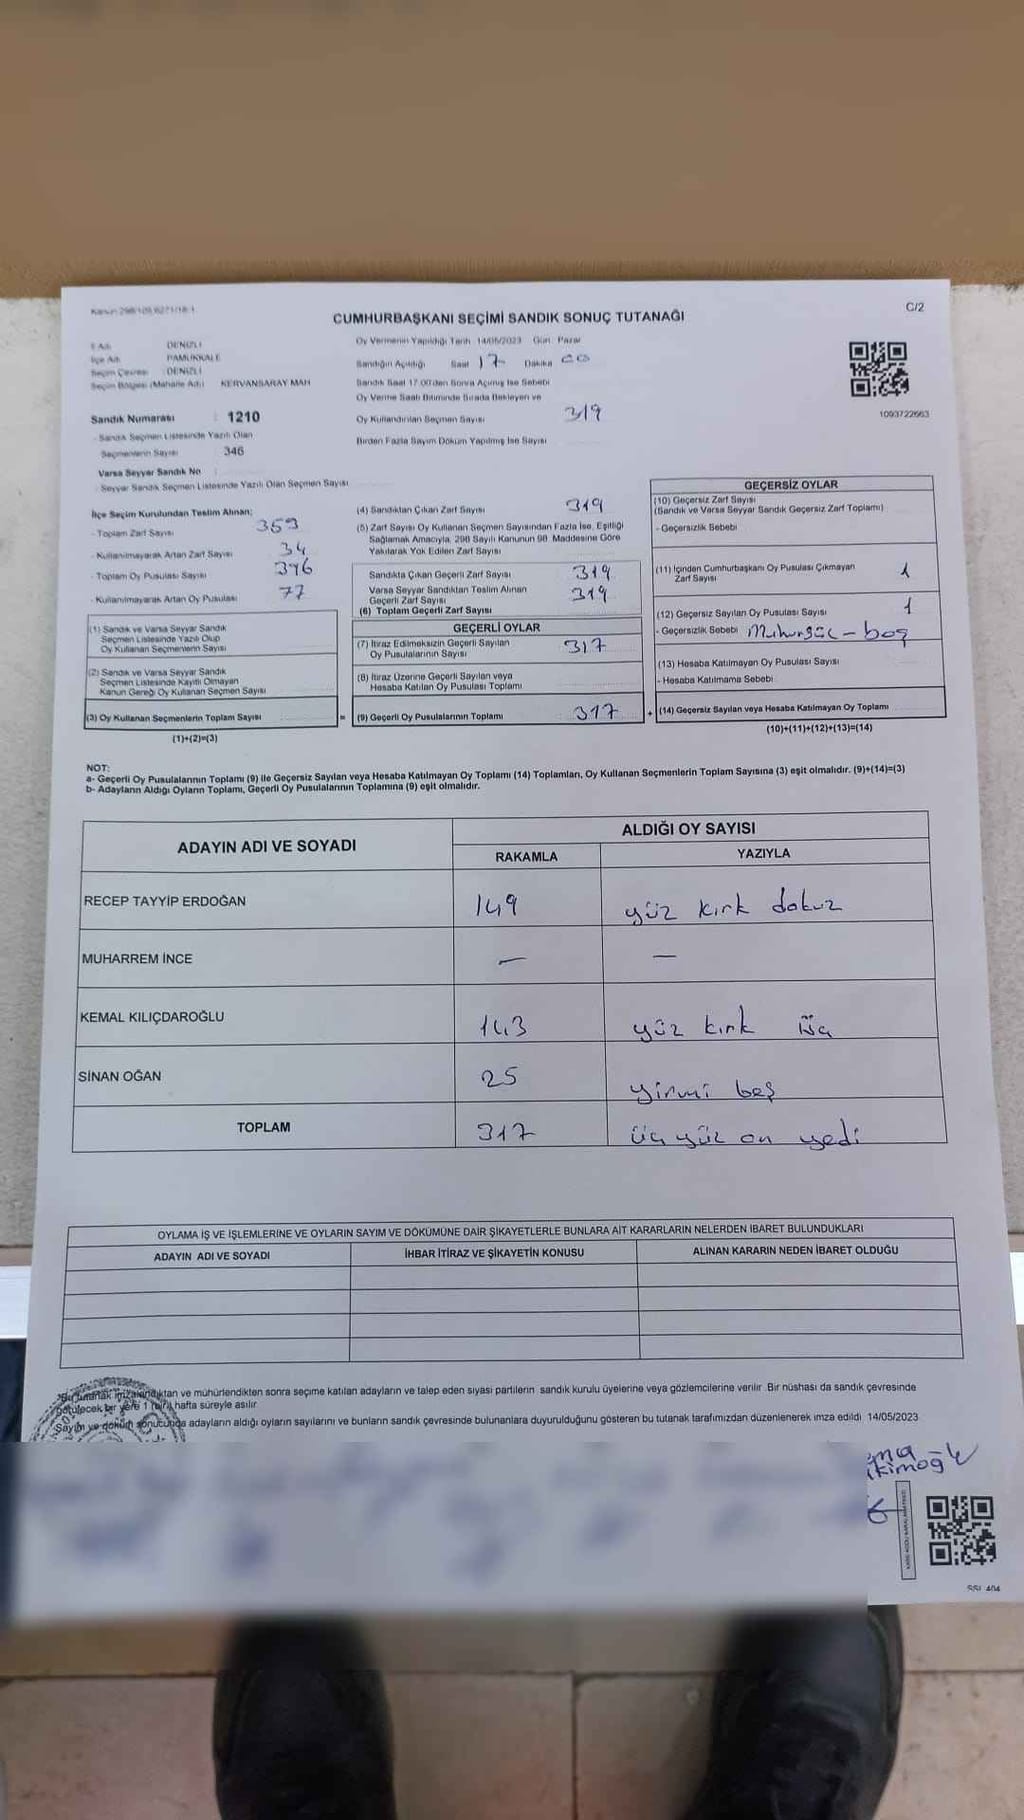 Kanun 298/105,6271/18-1
C/2
CUMHURBAŞKANI SEÇİMİ SANDIK SONUÇ TUTANAĞI
İl Adı : DENİZLİ
İlçe Adı : PAMUKKALE
Seçim Çevresi : DENİZLİ
Seçim Bölgesi (Mahalle Adı) : KERVANSARAY MAH
Sandık Numarası : 1210
- Sandık Seçmen Listesinde Yazılı Olan
Seçmenlerin Sayısı : 346
Varsa Seyyar Sandık No :
- Seyyar Sandık Seçmen Listesinde Yazılı Olan Seçmen Sayısı
Oy Vermenin Yapıldığı Tarih 14/05/2023 Gün: Pazar
Sandığın Açıldığı Saat 17 Dakika 00
Sandık Saat 17.00'den Sonra Açılmış İse Sebebi
Oy Verme Saati Bitiminde Sırada Bekleyen ve
Oy Kullandırılan Seçmen Sayısı 319
Birden Fazla Sayım Döküm Yapılmış İse Sayısı
1093722663
İlçe Seçim Kurulundan Teslim Alınan;
- Toplam Zarf Sayısı 353
- Kullanılmayarak Artan Zarf Sayısı 34
- Toplam Oy Pusulası Sayısı 396
- Kullanılmayarak Artan Oy Pusulası 77
(1) Sandık ve Varsa Seyyar Sandık
Seçmen Listesinde Yazılı Olup
Oy Kullanan Seçmenlerin Sayısı
(2) Sandık ve Varsa Seyyar Sandık
Seçmen Listesinde Kayıtlı Olmayan
Kanun Gereği Oy Kullanan Seçmen Sayısı
(3) Oy Kullanan Seçmenlerin Toplam Sayısı
(1)+(2)=(3)
(4) Sandıktan Çıkan Zarf Sayısı 319
(5) Zarf Sayısı Oy Kullanan Seçmen Sayısından Fazla İse, Eşitliği
Sağlamak Amacıyla, 298 Sayılı Kanunun 98. Maddesine Göre
Yakılarak Yok Edilen Zarf Sayısı
Sandıkta Çıkan Geçerli Zarf Sayısı 319
Varsa Seyyar Sandıktan Teslim Alınan
Geçerli Zarf Sayısı 319
(6) Toplam Geçerli Zarf Sayısı
GEÇERLİ OYLAR
(7) İtiraz Edilmeksizin Geçerli Sayılan
Oy Pusulalarının Sayısı 317
(8) İtiraz Üzerine Geçerli Sayılan veya
Hesaba Katılan Oy Pusulası Toplamı
= (9) Geçerli Oy Pusulalarının Toplamı 317
GEÇERSİZ OYLAR
(10) Geçersiz Zarf Sayısı
(Sandık ve Varsa Seyyar Sandık Geçersiz Zarf Toplamı)
- Geçersizlik Sebebi
(11) İçinden Cumhurbaşkanı Oy Pusulası Çıkmayan
Zarf Sayısı 1
(12) Geçersiz Sayılan Oy Pusulası Sayısı 1
- Geçersizlik Sebebi Mühürsüz - boş
(13) Hesaba Katılmayan Oy Pusulası Sayısı
- Hesaba Katılmama Sebebi
+ (14) Geçersiz Sayılan veya Hesaba Katılmayan Oy Toplamı
(10)+(11)+(12)+(13)=(14)
NOT:
a- Geçerli Oy Pusulalarının Toplamı (9) ile Geçersiz Sayılan veya Hesaba Katılmayan Oy Toplamı (14) Toplamları, Oy Kullanan Seçmenlerin Toplam Sayısına (3) eşit olmalıdır. (9)+(14)=(3)
b- Adayların Aldığı Oyların Toplamı, Geçerli Oy Pusulalarının Toplamına (9) eşit olmalıdır.
ADAYIN ADI VE SOYADI
ALDIĞI OY SAYISI
RAKAMLA YAZIYLA
RECEP TAYYİP ERDOĞAN 149 yüz kırk dokuz
MUHARREM İNCE — —
KEMAL KILIÇDAROĞLU 143 yüz kırk üç
SİNAN OĞAN 25 yirmi beş
TOPLAM 317 üç yüz on yedi
OYLAMA İŞ VE İŞLEMLERİNE VE OYLARIN SAYIM VE DÖKÜMÜNE DAİR ŞİKAYETLERLE BUNLARA AİT KARARLARIN NELERDEN İBARET BULUNDUKLARI
ADAYIN ADI VE SOYADI İHBAR İTİRAZ VE ŞİKAYETİN KONUSU ALINAN KARARIN NEDEN İBARET OLDUĞU
Bu tutanak imzalandıktan ve mühürlendikten sonra seçime katılan adayların ve talep eden siyasi partilerin sandık kurulu üyelerine veya gözlemcilerine verilir. Bir nüshası da sandık çevresinde
görülecek bir yere 1 (bir) hafta süreyle asılır.
Sayım ve döküm sonucunda adayların aldığı oyların sayılarını ve bunların sandık çevresinde bulunanlara duyurulduğunu gösteren bu tutanak tarafımızdan düzenlenerek imza edildi. 14/05/2023
SSL 404